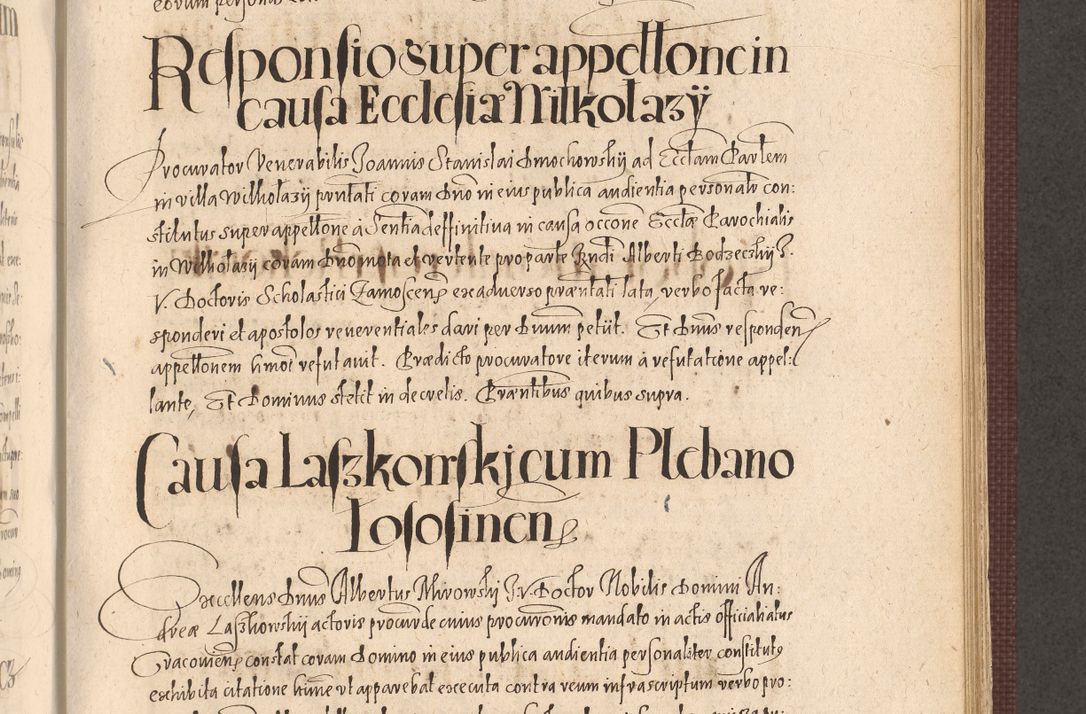 Responsio super appellone in
causa Ecclesiæ Wilkolazÿ
Procurator Venerabilis Joannis Stanislai Dmochowskij ad Ecclam Parlem
in villa Wilkolazij pntati coram Dno in eius publica audientia personalr con:
stitutus super appellone à Sentia deffinitiua in causa occone Ecclæ Parochialis
in Wilkolazij coram Dno mota et vertente pro parte Rndi Alberti Bodzeckij J.
V. Doctoris Scholastici Zamoscen ex aduerso præntati lata, verbo facta re:
sponderi et apostolos reuerentiales dari per Dnum petiit. Et Dnus responden
appellonem hmoi refutauit. Prædicto procuratore iterum à refutatione appel:
lante, Et Dominus stetit in decretis. Præntibus quibus supra.
Causa Laszkowskj cum Plebano
Lososinen
Excellens Dnus Albertus Mirowskj J.V. Doctor Nobilis Domini An:
dreæ Laszkowskij actoris procur de cuius procuronis mandato in actis officialiatus
Cracouien constat coram Domino in eius publica audientia personaliter constitutus
exhibita citatione hinc vt apparebat executa contra reum infrascriptum verbo pro: